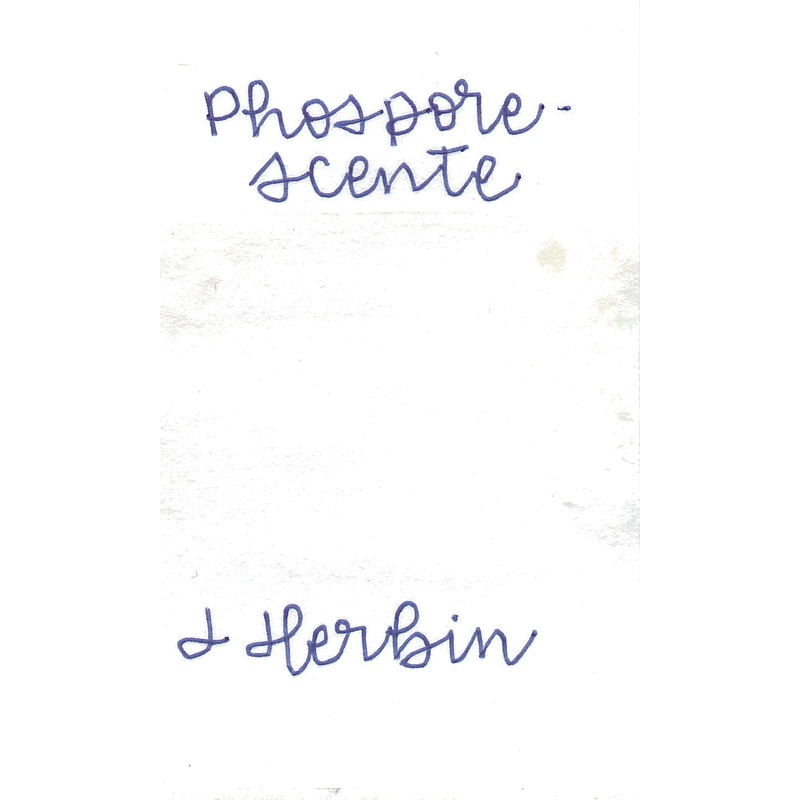 Phospore-
scente
J Herbin